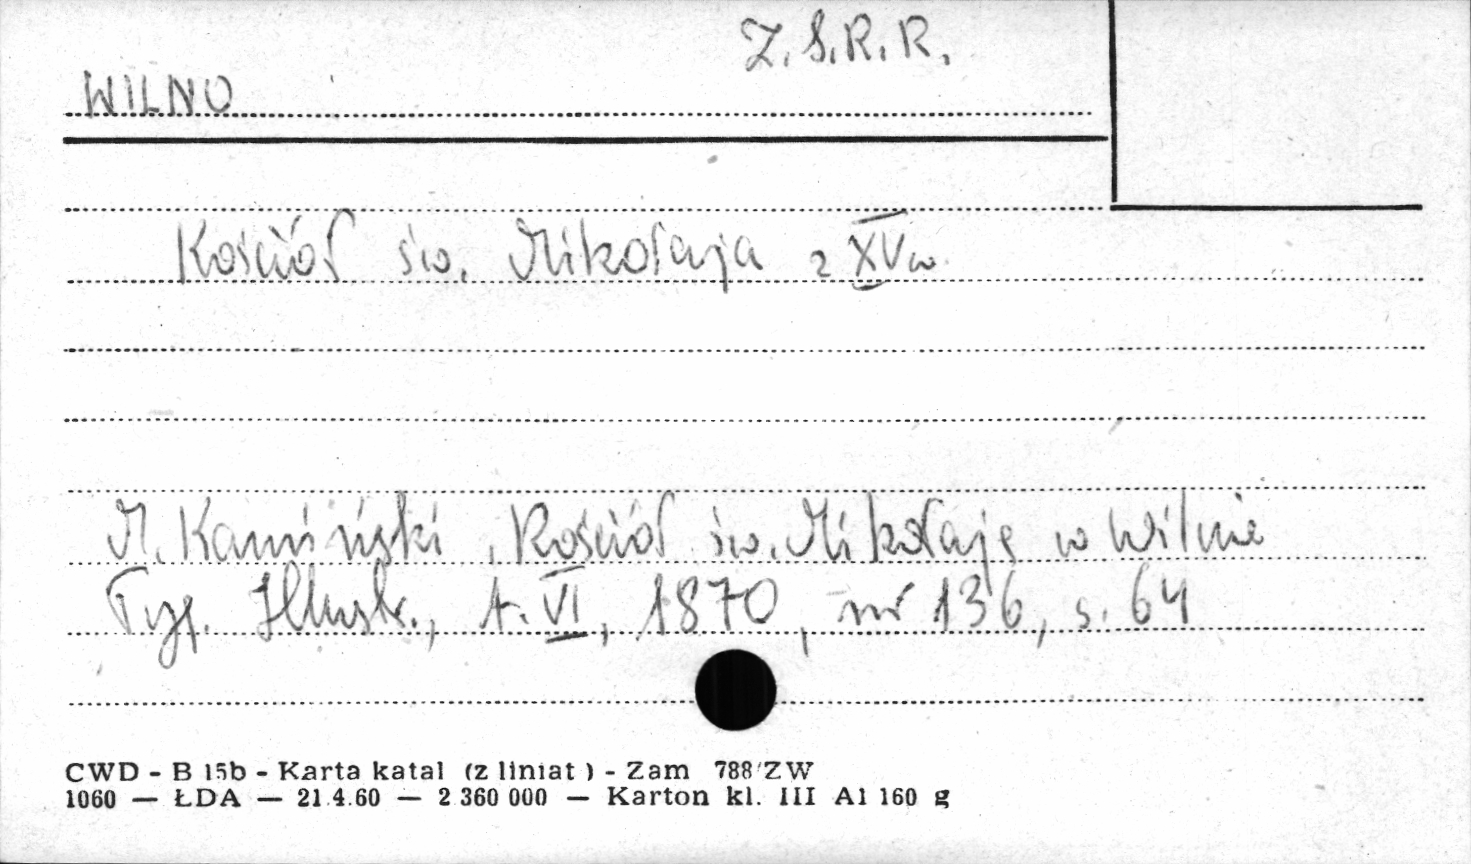 Z.S.R.R.
WILNO
Kościół św. Mikołaja z XV w.
M. Kamiński, Kościół św. Mikołaja w Wilnie
Tyg. Illustr., t. VI, 1870, nr 136, s. 64
CWD - B 15b - Karta katal (z liniat) - Zam 788/ZW
1060 — ŁDA — 21.4.60 — 2 360 000 — Karton kl. III A1 160 g